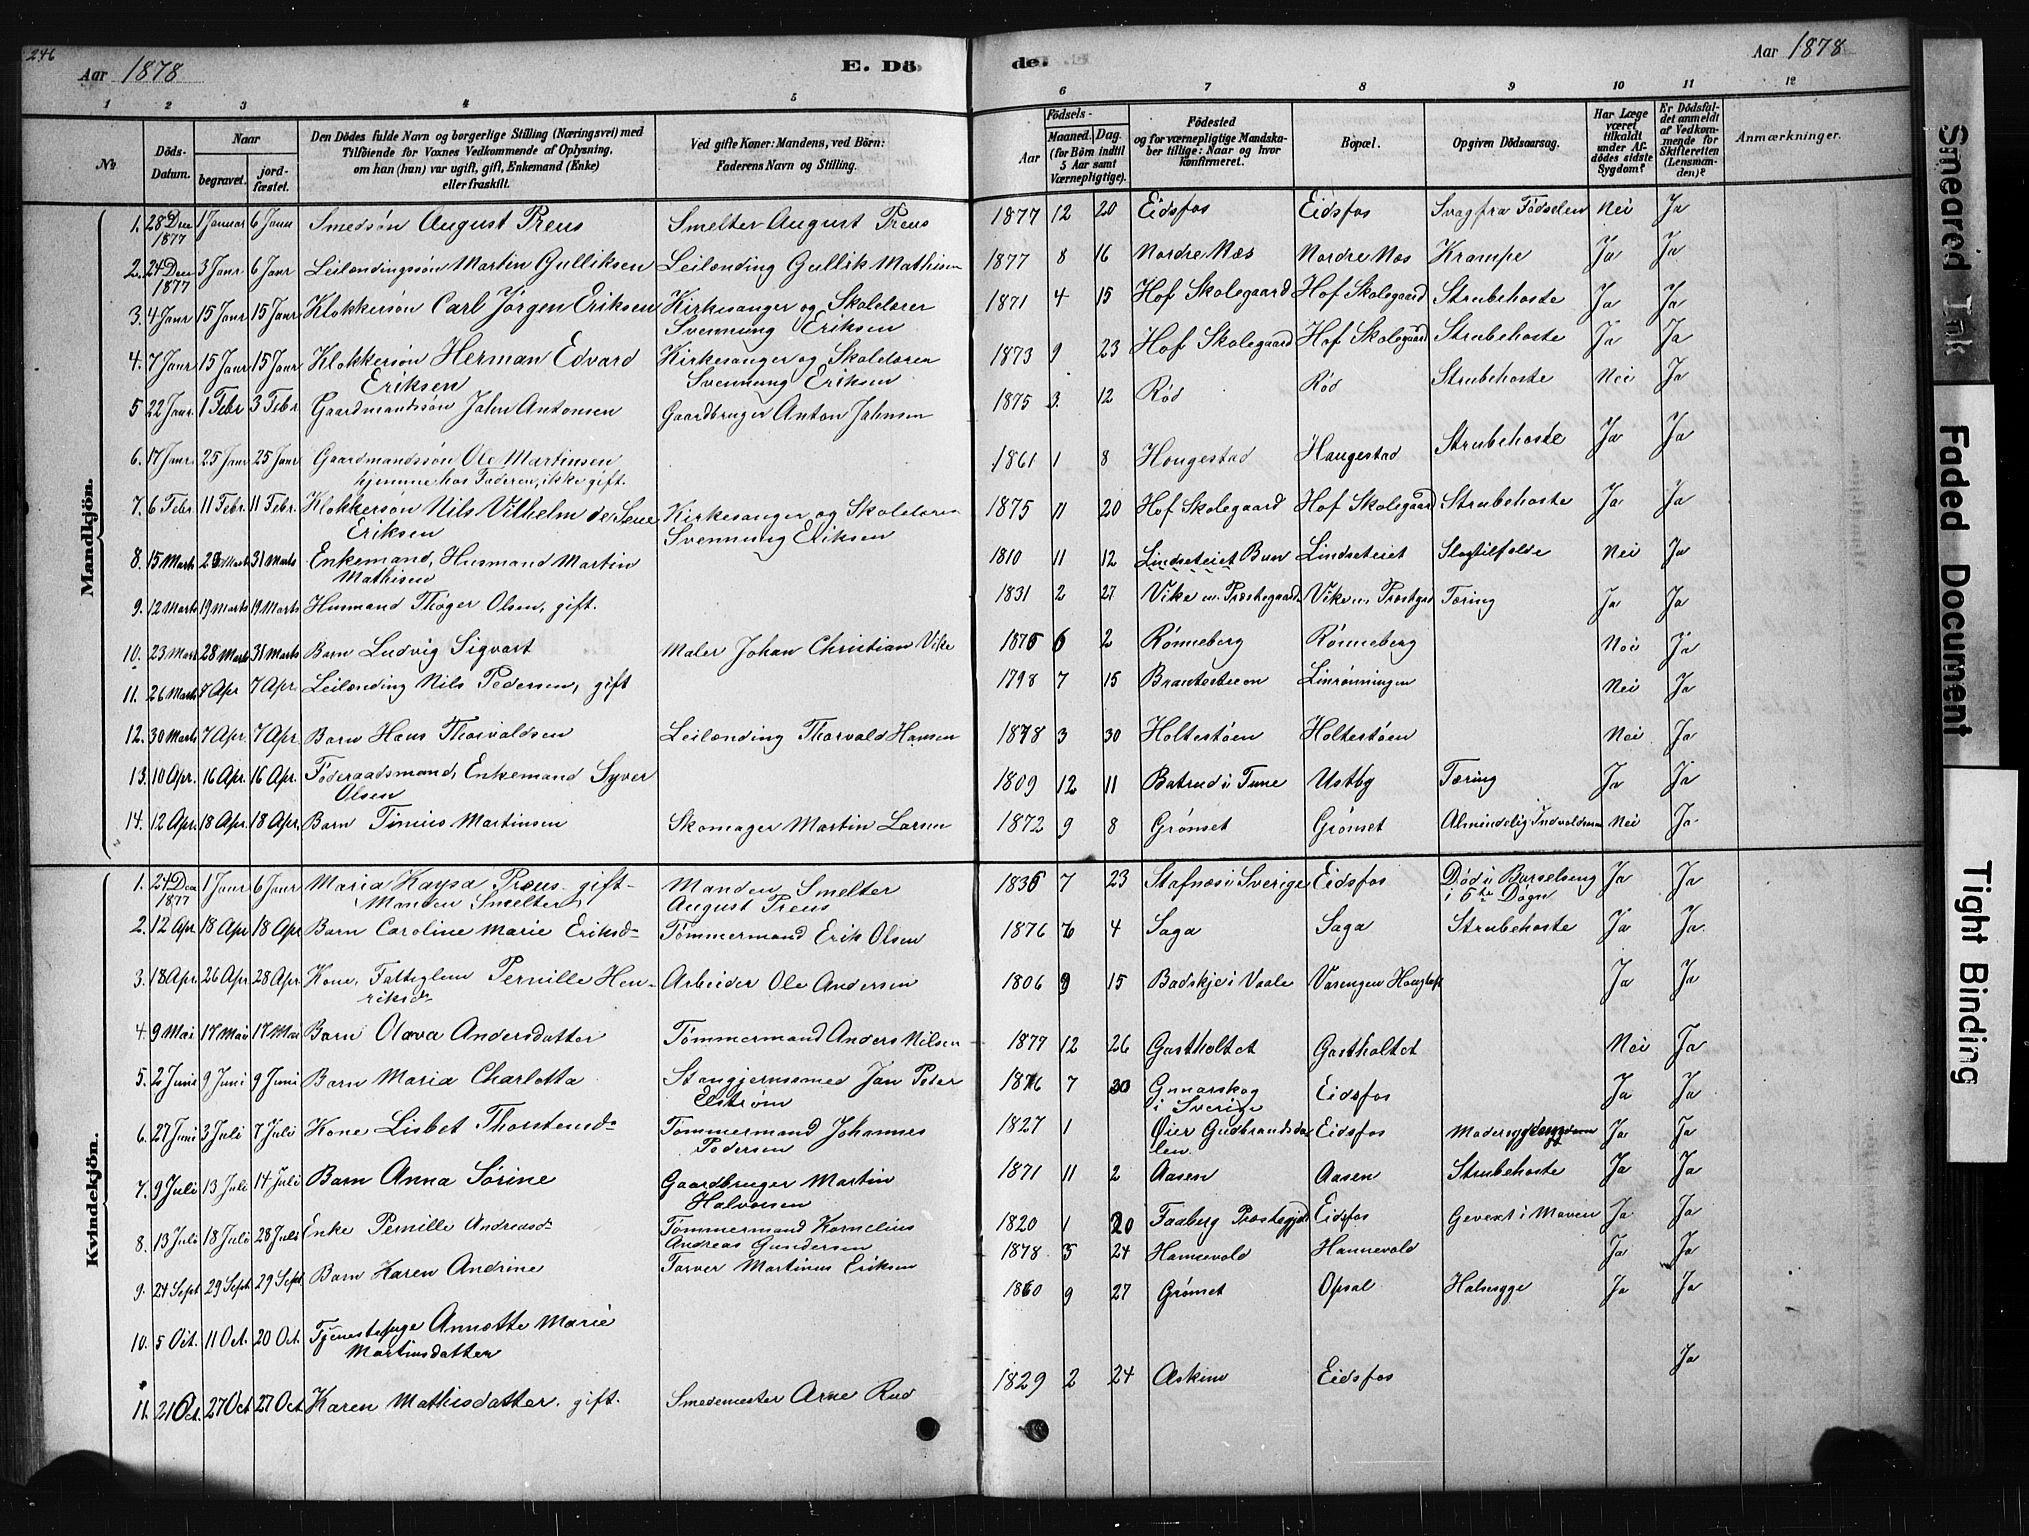 246
Aar 1878
E. Dö
de.
Aar 1878
1 2 3 4 5 6 7 8 9 10 11 12
No
Döds-Datum.
Naar
begravet.
jord-fæstet.
Den Dödes fulde Navn og borgerlige Stilling (Næringsvei) med
Tilföiende for Voxnes Vedkommende af Oplysning,
om han (hun) var ugift, gift, Enkemand (Enke)
eller fraskilt.
Ved gifte Koner: Mandens, ved Börn:
Faderens Navn og Stilling.
Födsels-
Aar
Maaned. Dag.
(for Börn indtil
5 Aar samt
Værnepligtige).
Födested
og for værnepligtige Mandska-
ber tillige: Naar og hvor
Konfirmeret.
Bopæl.
Opgiven Dödsaarsag.
Har Læge
været
tilkaldt
under Af-
dödes sidste
Sygdom?
Er Dödsfal-
det anmeldt
af Vedkom-
mende for
Skifteretten
(Lensman-
den)?
Anmærkninger.
Mandkjön.
1. 28 Dec 1877 1 Januar 6 Janu Smedsøn August Preus Smelter August Preus 1877 12 20 Eidsfos Eidsfos Svag fra Fødselen Nei Ja
2. 24 Dec 1877 3 Janr 6 Janr Leilændingsøn Martin Gulliksen Leilænding Gullik Mathisen 1877 8 16 Nordre Næs Nordre Næs Krampe Ja Ja
3. 4 Janr 15 Janr 15 Janr Klokkersøn Carl Jörgen Eriksen Kirkesanger og Skolelærer Svennung Eriksen 1871 4 15 Hof Skolegaard Hof Skolegaard Strubehoste Ja Ja
4. 7 Janr 15 Janr 15 Janr Klokkersøn Herman Edvard Eriksen Kirkesanger og Skolelærer Svennung Eriksen 1873 9 23 Hof Skolegaard Hof Skolegaard Strubehoste Ja Ja
5 22 Janr. 1 Febr 3 Febr Gaardmandssøn John Antonsen Gaardbruger Anton Johnsen 1875 3. 12 Rød Rød Strubehoste Nei Ja
6. 17 Janr. 25 Janr 25 Janr Gaardmandssøn Ole Martinsen hjemme hos Faderen, ikke gift. 1861 1 8 Hougestad Haugestad Strubehoste Ja Ja
7. 6 Febr. 11 Febr. 11 Febr. Klokkersøn Nils Vilhelm de Seue Eriksen Kirkesanger og Skolelærer Svennung Eriksen 1875 11 20 Hof Skolegaard Hof Skolegaard Strubehoste Ja Ja
8. 15 Marts 31 Marts Enkemand, Husmand Martin Mathisen 1810 11 12 Lindseteiet Lindseteiet Slagtilfælde Nei Ja
9. 12 Marts 19 Marts 19 Marts Husmand Thøger Olsen, gift. 1831 2 27 Vike Tæring Ja Ja
10. 23 Marts 28 Marts 31 Marts Barn Ludvig Sigvart Maler Johan Christian Vike 6 2 Rønneberg Rønneberg Nei Ja
11. 26 Marts 7 Apr 7 Apr. Leilænding Nils Pedersen, gift 1798 7 15 Linrønningen Nei Ja
12. 30 Marts 7 Apr. 7 Apr. Barn Hans Thorvaldsen Leilænding Thorvald Hansen 1878 3 30 Holtestøen Holtestøen Nei Ja
13. 10 Apr. 16 Apr. 16 Apr. Føderaadsmand, Enkemand Syver Olsen 1809 12 11 Batrud i Tune Ustby Tæring Ja Ja
14. 12 Apr. 18 Apr. 18 Apr. Barn Tinius Martinsen Skomager Martin Larsen 1872 9 8 Grømset Grømset Almindelig Nei Ja.
Kvindekjön.
1. 24 Dec 1877 1 Janr 6 Janr Maria Kaysa Preus. gift. Manden Smelter Manden Smelter August Preus 7 23 Stafnæs i Sverige Eidsfos Død i Barselseng i 5te Døgn Ja Ja
2. 12 Apr. 18 Apr 18 Apr Barn Caroline Marie Eriksd. Tømmermand Erik Olsen 1876 4 Saga Saga Strubehoste Ja Ja.
3. 18 Apr. 26 Apr 28 Apr. Kone, Fattiglem Pernille Henriksdr Arbeider Ole Andersen 1806 9 15 Badskje i Vaale Ja Ja.
4. 9 Mai 17 Mai 17 Mai Barn Olava Andersdatter Tømmermand Anders Nilsen 1877 12 26 Gastholtet Gastholtet Nei Ja
5. 2 Juni 9 Juni 9 Juni Barn Maria Charlotta Stangjernssmed Jan Peter Elstrøm 1876 7 Gunnarskog i Sverige Eidsfos Ja Ja
6. 27 Juni 3 Juli 7 Juli Kone Lisbet Thorstensd. Tømmermand Johannes Pedersen 1827 1 Øier Gudbrandsdalen Eidsfos Ja Ja
7. 9 Juli 13 Juli 14 Juli Barn Anna Sörine Gaardbruger Martin Halvorsen 1871 11 2 Aasen Aasen Strubehoste Ja Ja
8. 13 Juli 18 Juli 28 Juli Enke Pernille Andreasd Tømmermand Kornelius Andreas Gundersen 1820 1 20 Faaberg Præstegjeld Eidsfos Gevext i Maven Ja Ja
9. 24 Sept 29 Sept. 29 Sept. Barn Karen Andrine Farver Martinus Eriksen 1878 5 24 Hannevold Hannevold Ja Ja
10. 5 Oct. 11 Oct. 20 Oct. Tjenestepige Annette Marie Martinsdatter 1860 9 27 Grømset Opsal Halssyge Ja Ja
11. 21 Oct. 27 Oct 27 Oct Karen Mathisdatter. gift. Smedemester Arne Rud 1829 2 24 Askim Eidsfos Ja
Smeared Ink
Faded Document
Tight Binding